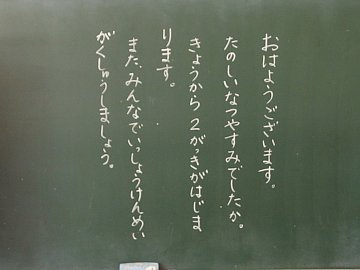 おはようございます。
たのしいなつやすみでしたか。
きょうから2がっきがはじま
ります。
また、みんなでいっしょうけんめい
がくしゅうしましょう。